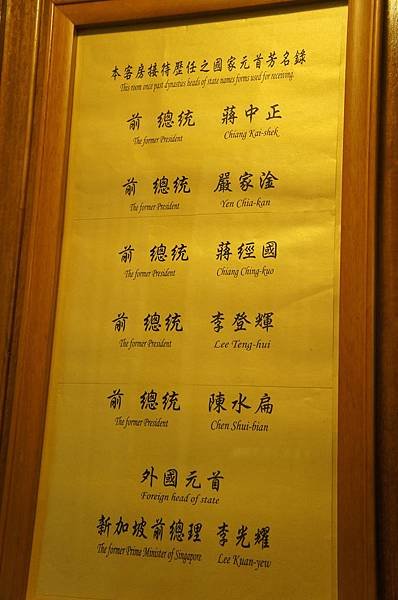 本客房接待歷任之國家元首芳名錄
This room once past dynasties heads of state names forms used for receiving.
前 總統 蔣中正
The former President Chiang Kai-shek
前 總統 嚴家淦
The former President Yen Chia-kan
前 總統 蔣經國
The former President Chiang Ching-kuo
前 總統 李登輝
The former President Lee Teng-hui
前 總統 陳水扁
The former President Chen Shui-bian
外國元首
Foreign head of state
新加坡前總理 李光耀
The former Prime Minister of Singapore Lee Kuan-yew